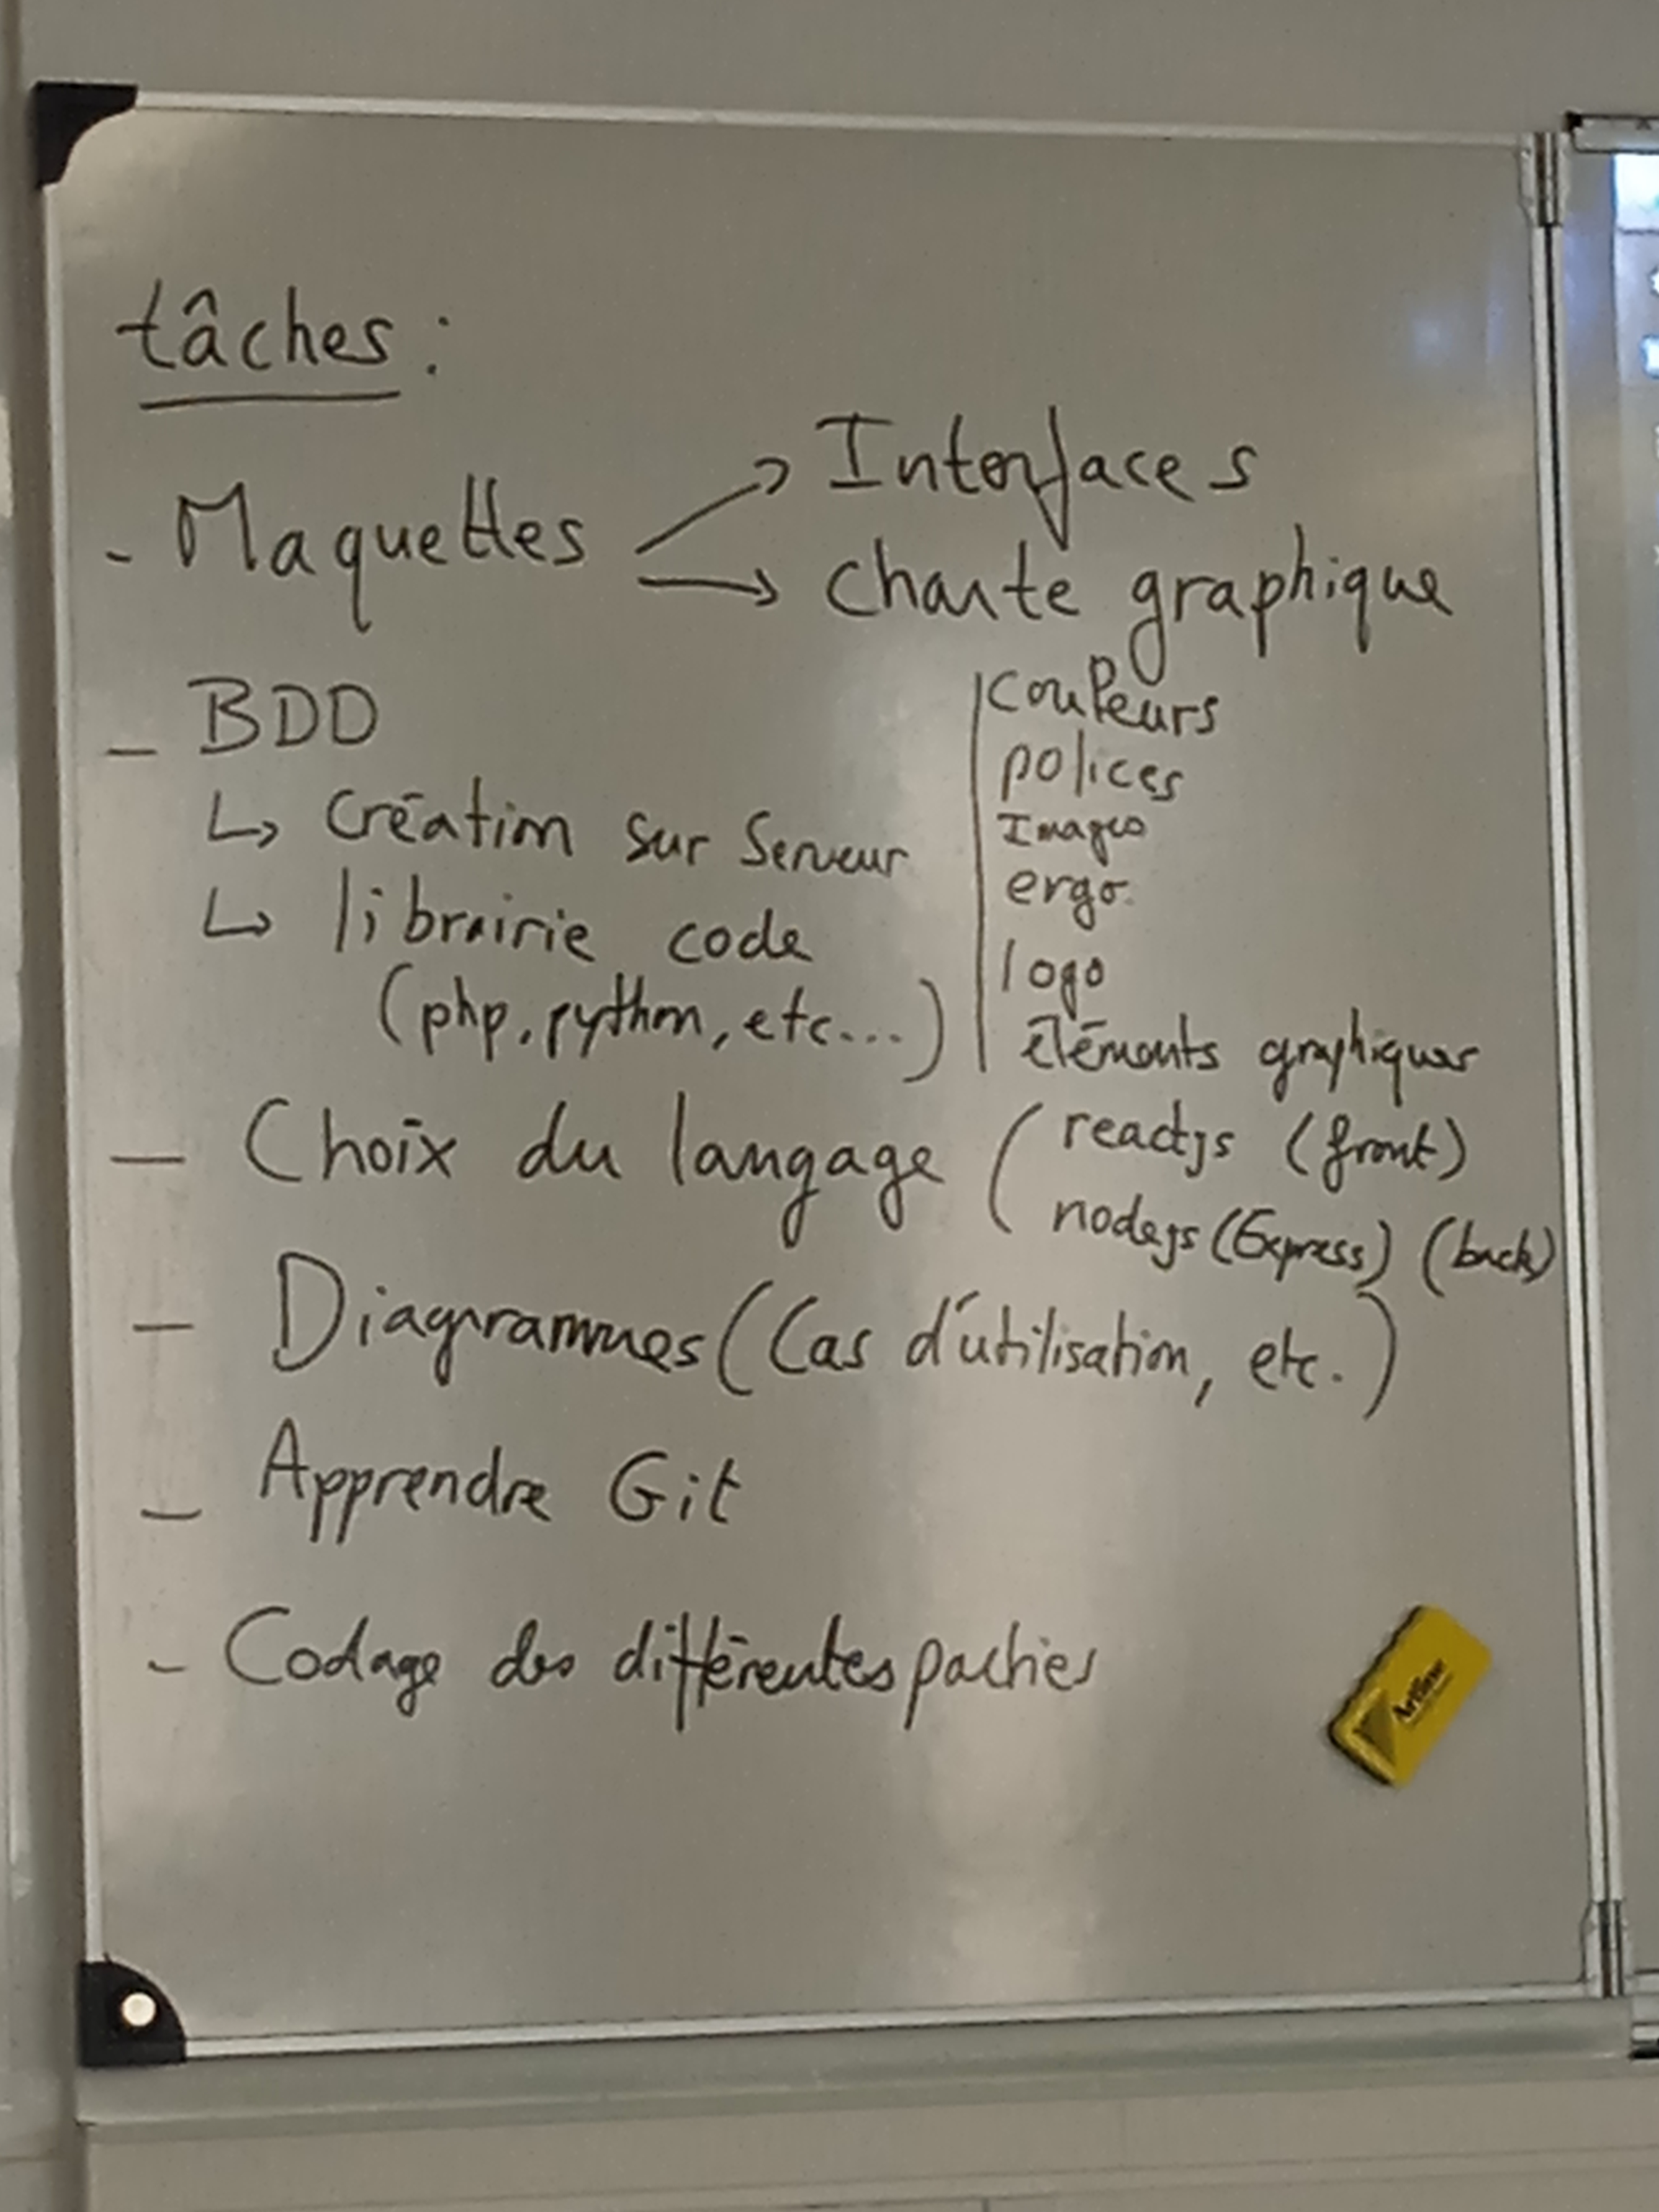 tâches :
- Maquettes → Interfaces
→ charte graphique
couleurs
polices
Images
ergo.
logo
éléments graphiques
- BDD
↳ création sur serveur
↳ librairie code
(php, python, etc...)
- Choix du langage ( reactjs (front)
nodejs (Express) (back)
- Diagrammes (Cas d'utilisation, etc.)
- Apprendre Git
- Codage des différentes parties
Artline